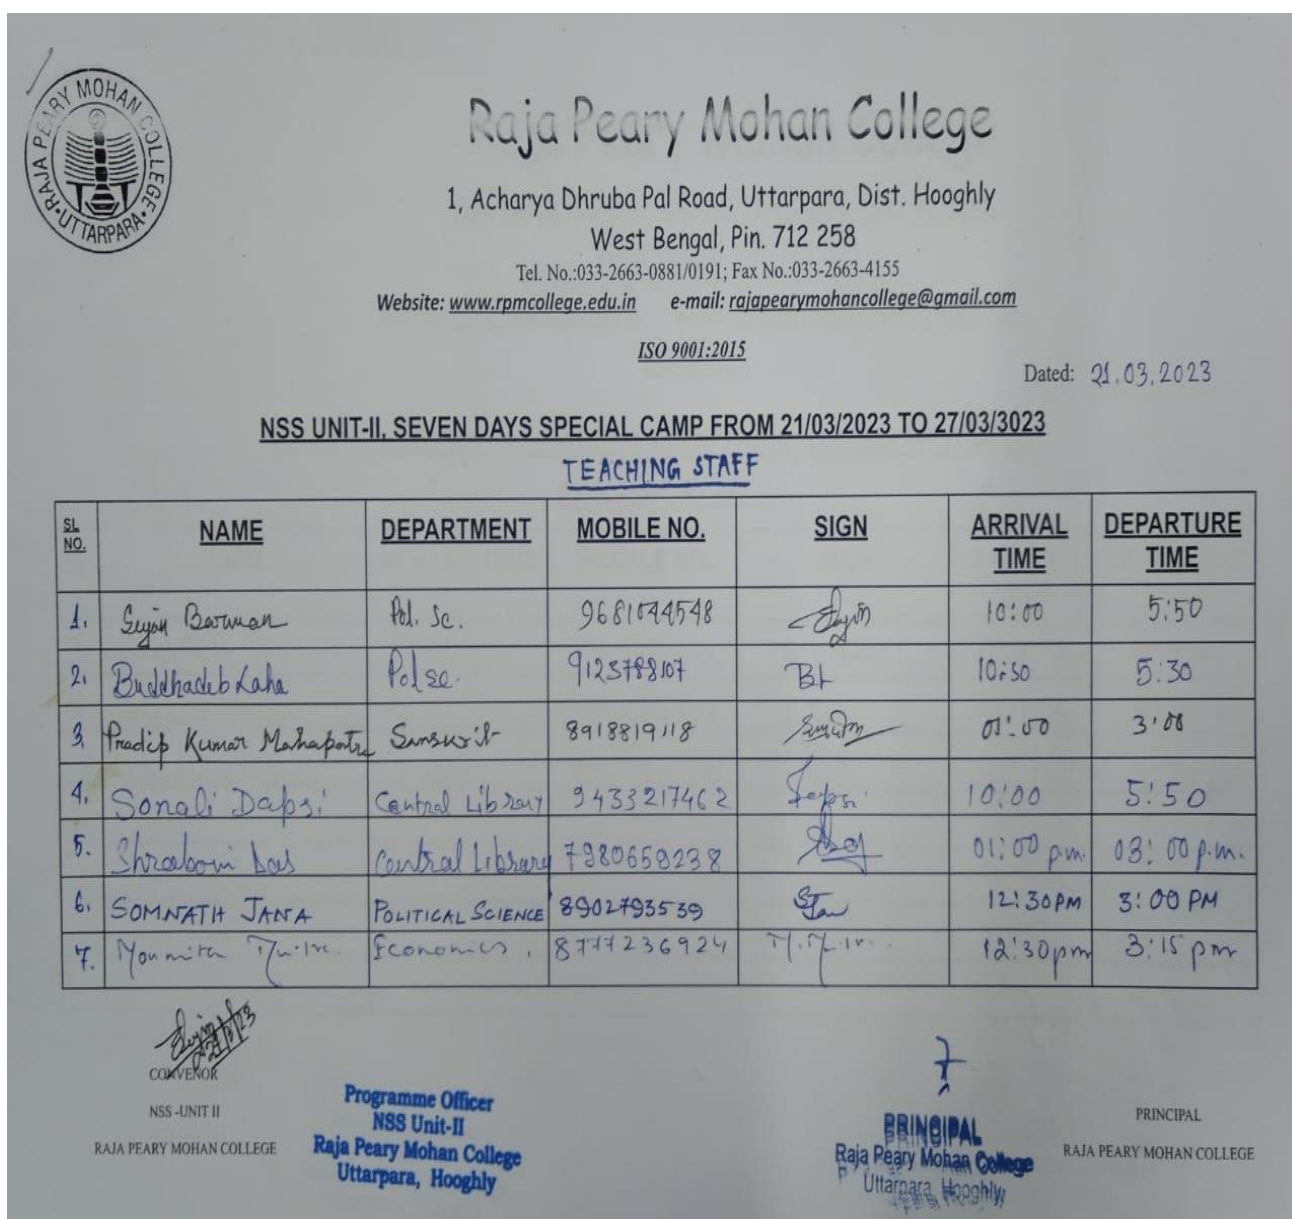 RAJA PEARY MOHAN COLLEGE
UTTARPARA
Raja Peary Mohan College
1, Acharya Dhruba Pal Road, Uttarpara, Dist. Hooghly
West Bengal, Pin. 712 258
Tel. No.:033-2663-0881/0191; Fax No.:033-2663-4155
Website: www.rpmcollege.edu.in e-mail: rajapearymohancollege@gmail.com
ISO 9001:2015
Dated: 21.03.2023
NSS UNIT-II, SEVEN DAYS SPECIAL CAMP FROM 21/03/2023 TO 27/03/3023
TEACHING STAFF
SL NO. NAME DEPARTMENT MOBILE NO. SIGN ARRIVAL TIME DEPARTURE TIME
1. Sujan Barman Pol. Sc. 9681044548 10:00 5:50
2. Buddhadeb Laha Pol sc. 9123788107 BL 10:30 5:30
3. Pradip Kumar Mahapatra Sanskrit 8918819118 01:00 3:00
4. Sonali Dapsi Central Library 9433217462 Dapsi 10:00 5:50
5. Shraboni Das Central Library 7980659238 Das 01:00 p.m. 03:00 p.m.
6. SOMNATH JANA POLITICAL SCIENCE 8902793539 SJana 12:30PM 3:00 PM
7. Moumita Economics. 8777236924 12:30pm 3:15 pm
21/3/23
CONVENOR
NSS -UNIT II
RAJA PEARY MOHAN COLLEGE
Programme Officer
NSS Unit-II
Raja Peary Mohan College
Uttarpara, Hooghly
PRINCIPAL
Raja Peary Mohan College
Uttarpara, Hooghly
PRINCIPAL
RAJA PEARY MOHAN COLLEGE